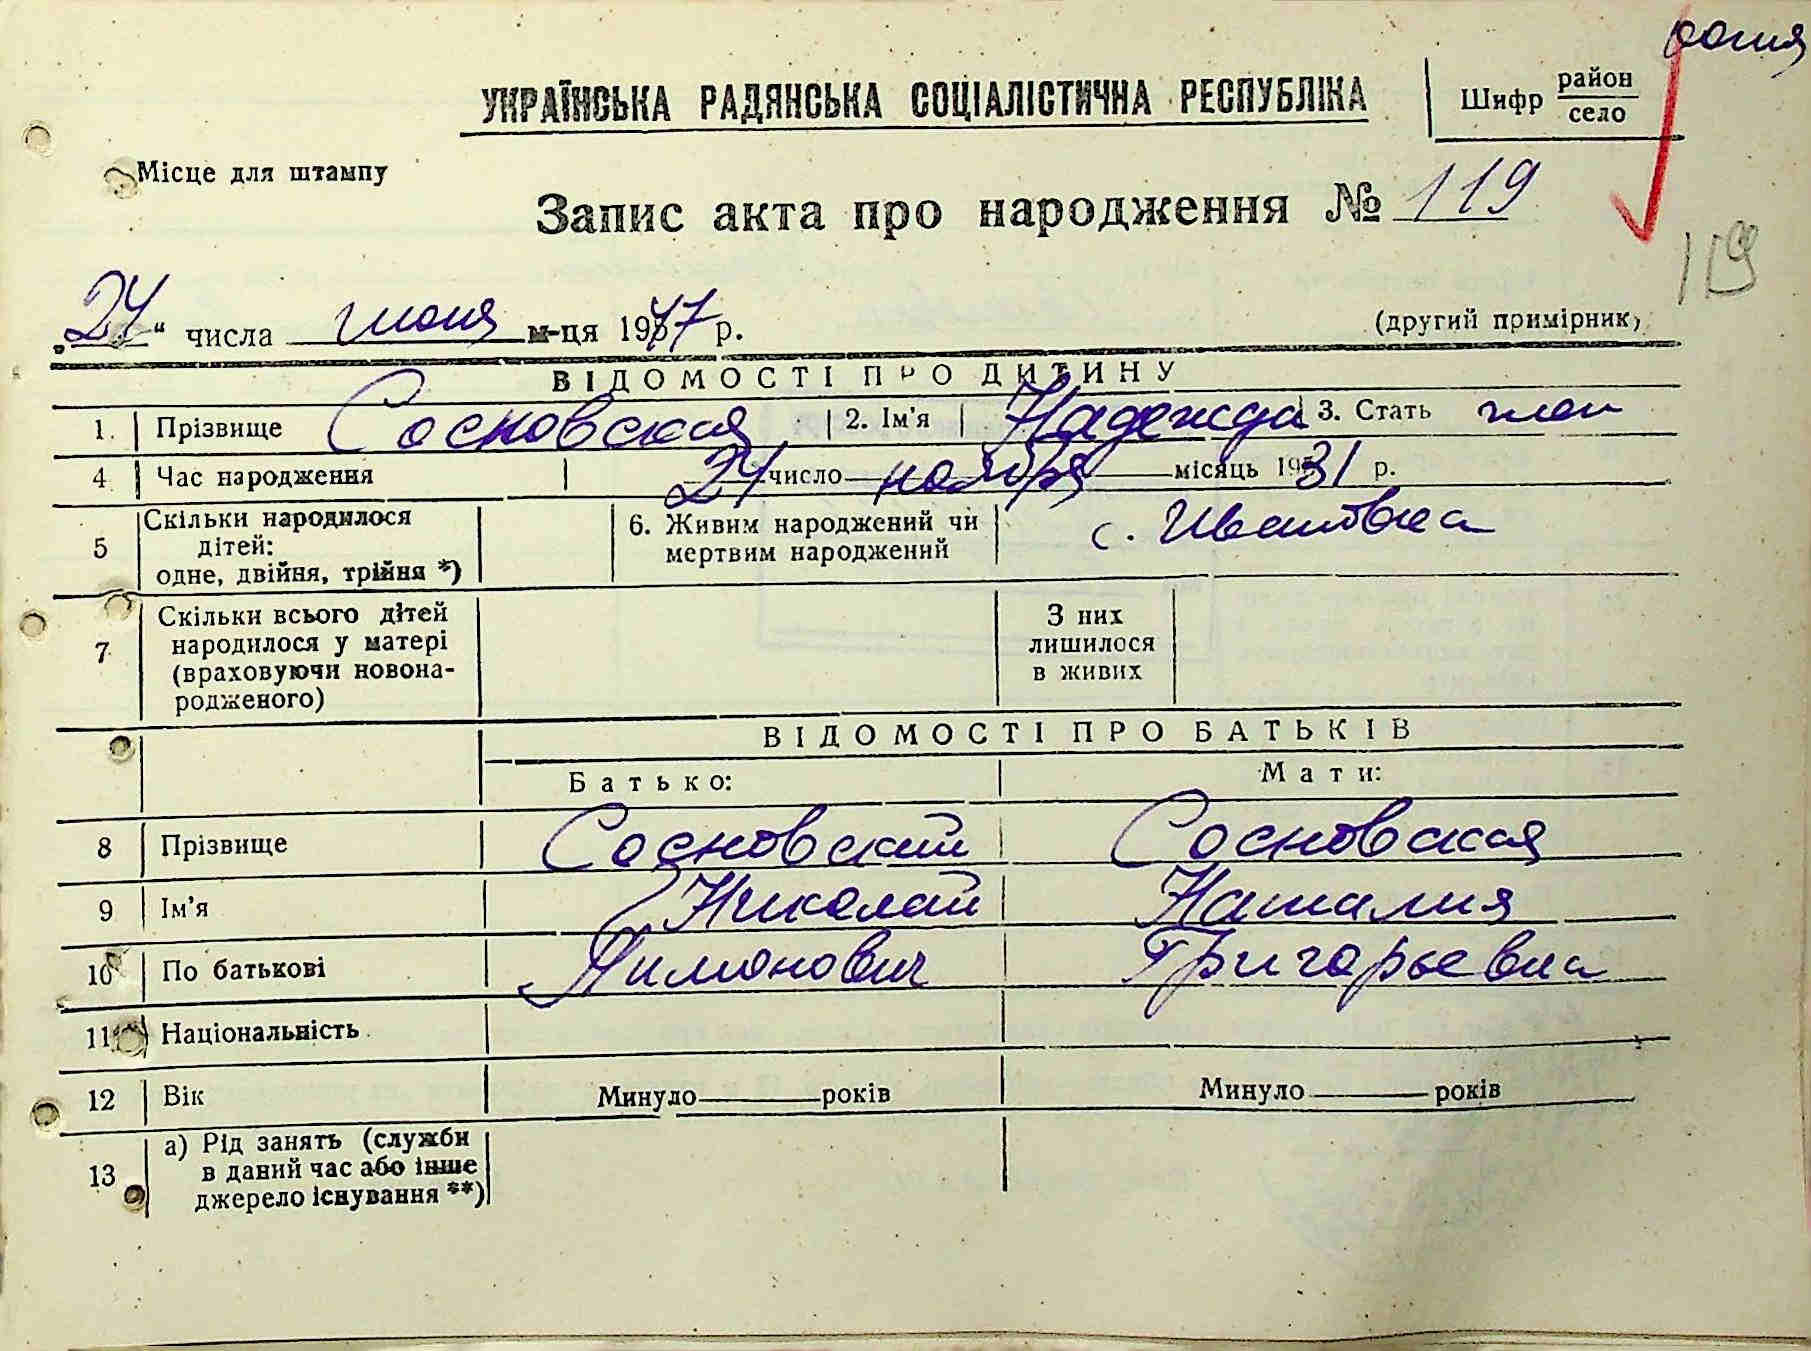 копия
УКРАЇНСЬКА РАДЯНСЬКА СОЦІАЛІСТИЧНА РЕСПУБЛІКА
Шифр район
село
Місце для штампу
Запис акта про народження № 119
119
„24“ числа июня м-ця 1947 р. (другий примірник)
ВІДОМОСТІ ПРО ДИТИНУ
1. Прізвище Сосновская 2. Ім'я Надежда 3. Стать жен
4. Час народження 24 число ноября місяць 1931 р.
5 Скільки народилося
дітей:
одне, двійня, трійня *)
6. Живим народжений чи
мертвим народжений
с. Ивановка
7. Скільки всього дітей
народилося у матері
(враховуючи новона-
родженого)
З них
лишилося
в живих
ВІДОМОСТІ ПРО БАТЬКІВ
Батько: Мати:
8 Прізвище Сосновский Сосновская
9 Ім'я Николай Наталия
10 По батькові Пимонович Григорьевна
11 Національність
12 Вік Минуло років Минуло років
13 а) Рід занять (служби
в даний час або інше
джерело існування **)